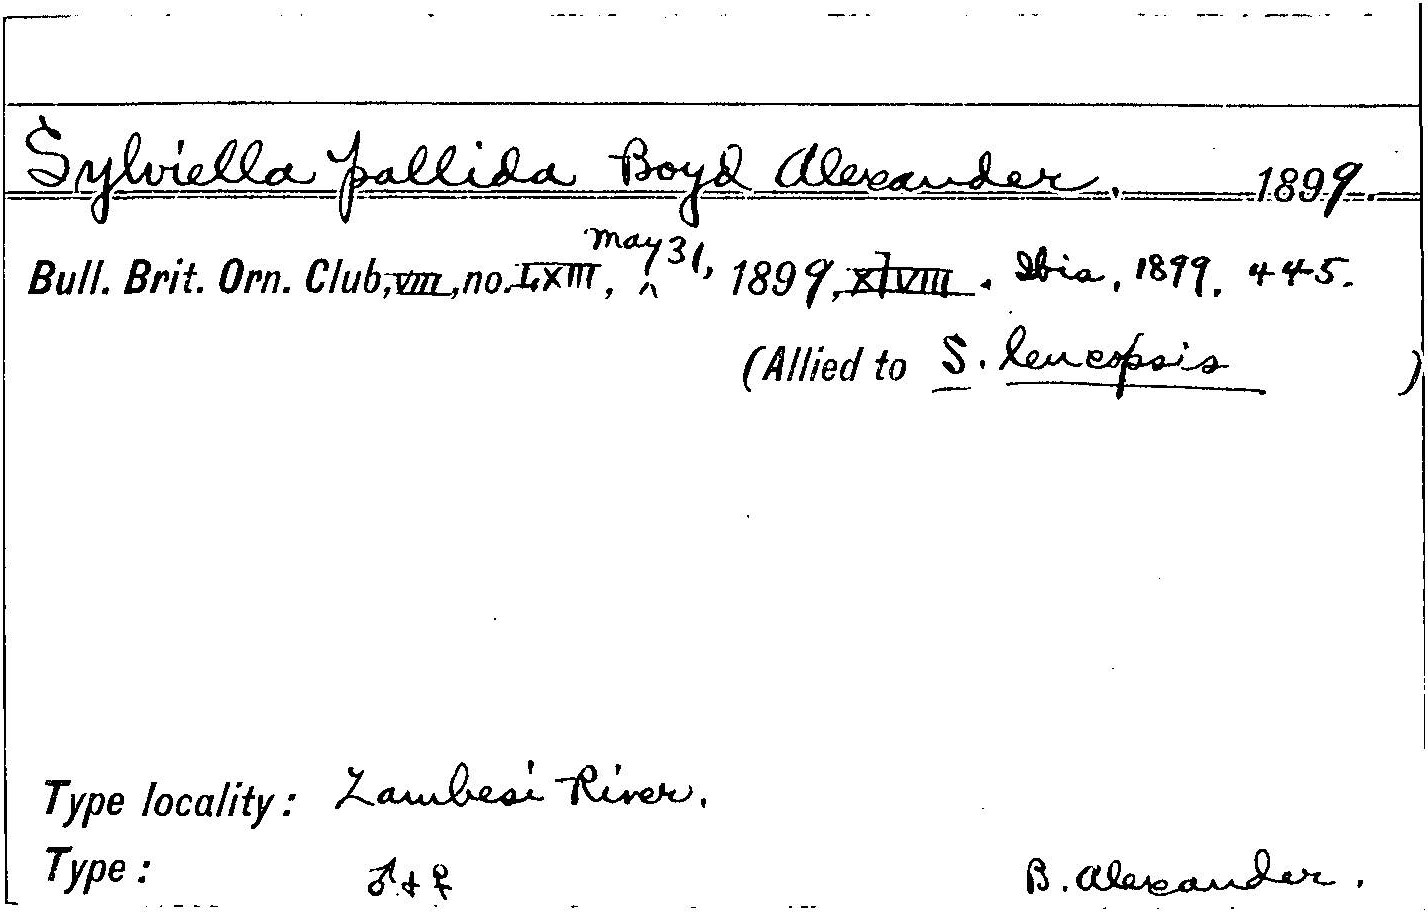 Sylviella pallida Boyd Alexander. 1899.
Bull. Brit. Orn. Club, VIII, no. LXIII, May 31, 1899, XLVIII. Ibis, 1899, 445.
(Allied to S. leucopsis )
Type locality: Zambesi River.
Type: ♂ & ♀ B. Alexander.